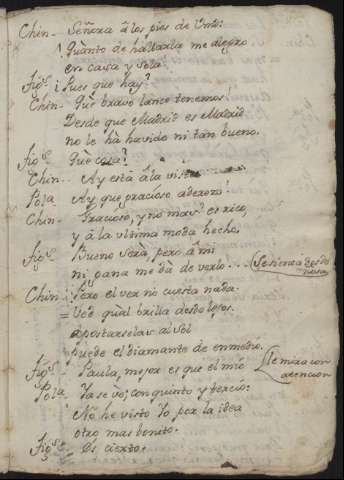 Chin.. Señora â los pies de Vmd:
Quànto de hallarla me alegro
en casa y sola.
fig.ª Pues que hay?
Chin.. Què bravo lance tenemos!
Desde que Madrid es Madrid
no le hà havido ni tan bueno.
fig.ª Què cosa?
Chin.. Ay està â la vista
Pola. Ay que gracioso aderezo!
Chin.. Gracioso, y no mas? es rico,
y â la ultima moda hecho.
fig.ª Bueno serà, pero â mi
ni gana me dà de verlo...
Chin.. Pero el ver no cuesta nada.
Vea qual brilla
apostarselas al sol
puede el diamante de enmedio.
le mira con
atencion
fig.ª Paula, mejor es que el mio
Pola. Ya se vè; con quinto y tercio:
No he visto Yo por la idea
otro mas bonito.
fig.ª Es cierto.